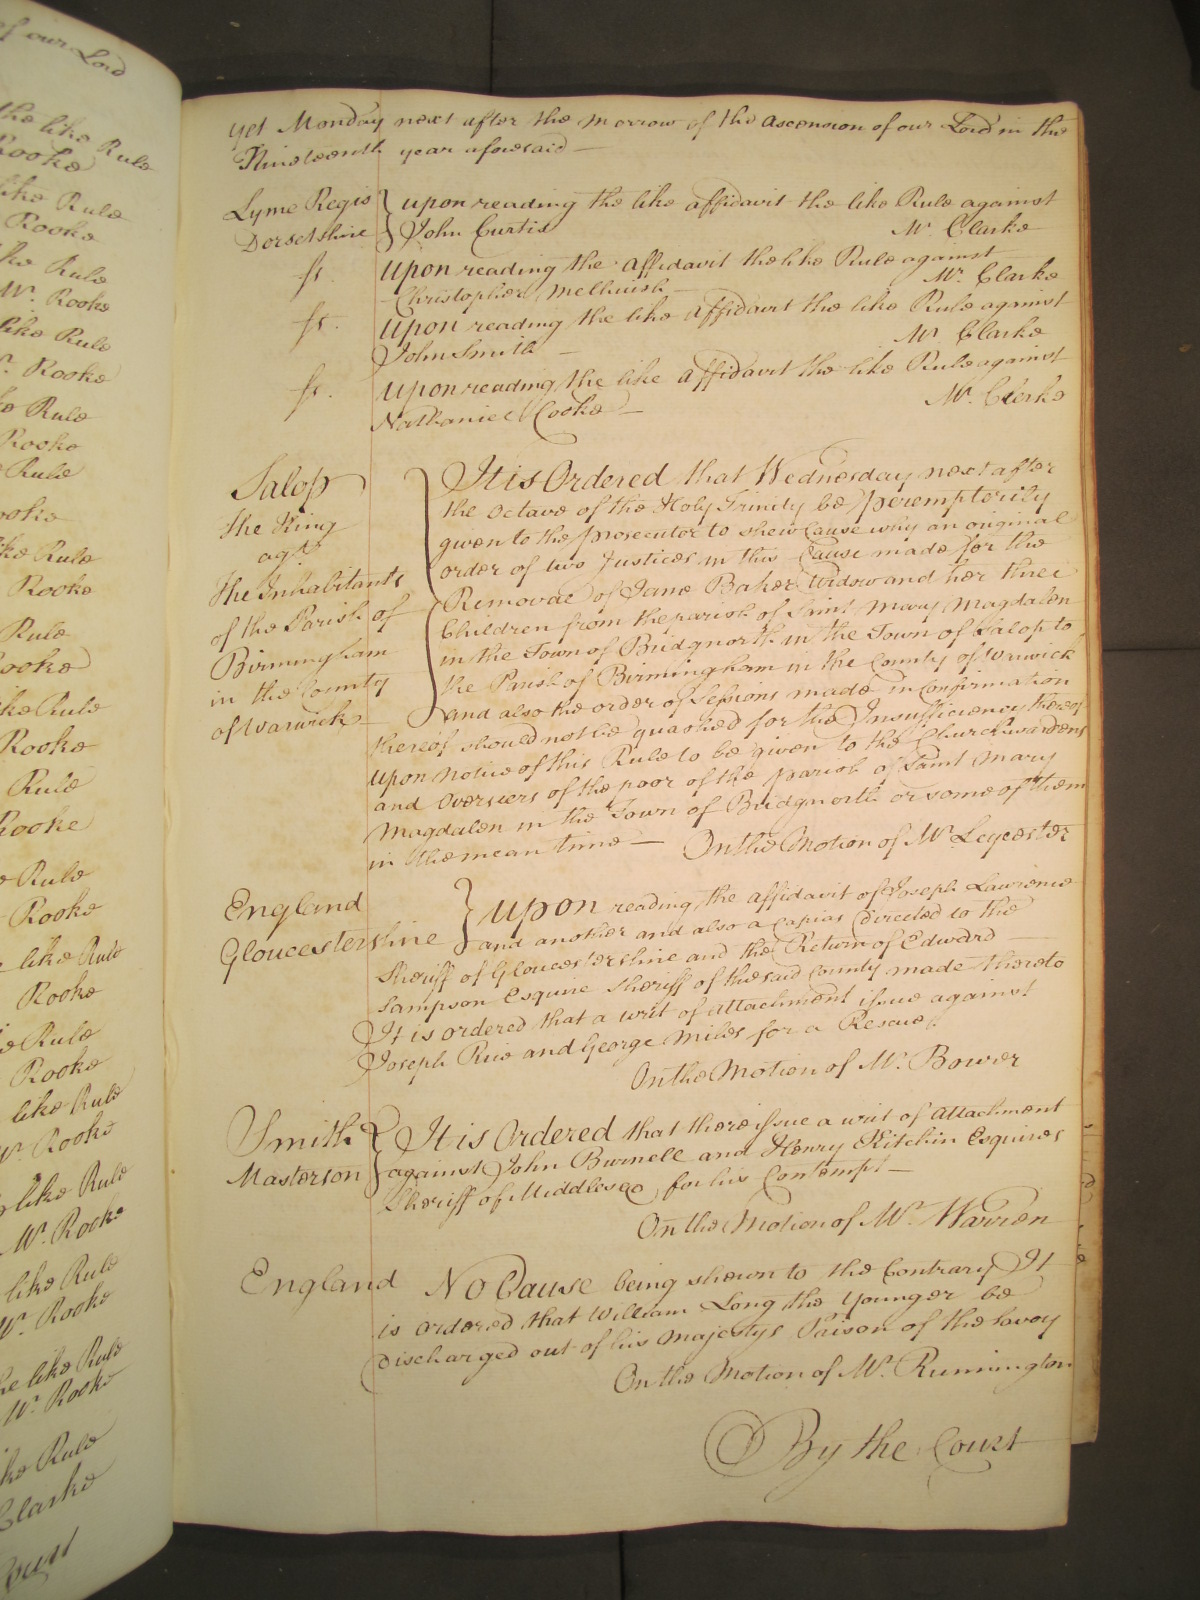 of our Lord
the like Rule
Rooke
like Rule
Rooke
like Rule
Mr. Rooke
like Rule
Mr. Rooke
like Rule
Rooke
Rule
Rooke
like Rule
Rooke
Rule
Rooke
like Rule
Rooke
Rule
Rooke
Rule
Rooke
like Rule
Rooke
Rule
Rooke
like Rule
Mr. Rooke
like Rule
Mr. Rooke
like Rule
Mr. Rooke
the like Rule
Mr. Rooke
like Rule
Clarke
Court
Yet Monday next after the Morrow of the Ascension of our Lord in the
Nineteenth year aforesaid —
Lyme Regis } upon reading the like affidavit the like Rule against
Dorsetshire } John Curtis Mr. Clarke
ss. Upon reading the affidavit the like Rule against
Christopher Melhuish — Mr. Clarke
ss. Upon reading the like affidavit the like Rule against
John Smith — Mr. Clarke
ss. Upon reading the like affidavit the like Rule against
Nathaniel Cooke — Mr. Clerke
Salop
The King
agt
The Inhabitants
of the Parish of
Birmingham
in the County
of Warwick
It is Ordered that Wednesday next after
the Octave of the Holy Trinity be peremptorily
given to the prosecutor to shew Cause why an original
order of two Justices in this Cause made for the
Removal of Jane Baker Widow and her three
Children from the parish of Saint Mary Magdalen
in the Town of Bridgnorth in the Town of Salop to
the Parish of Birmingham in the County of Warwick
and also the order of Sessions made in Confirmation
thereof should not be quashed for the Insufficiency thereof
upon notice of this Rule to be given to the Churchwardens
and Overseers of the poor of the parish of Saint Mary
Magdalen in the Town of Bridgnorth or some of them
in the mean time — On the Motion of Mr. Leycester
England
Gloucestershire } Upon reading the affidavit of Joseph Lawrence
and another and also a Capias directed to the
Sheriff of Gloucestershire and the Return of Edward
Sampson Esquire Sheriff of the said County made thereto
It is ordered that a writ of attachment issue against
Joseph Rice and George Miles for a Rescue.
On the Motion of Mr. Bower
Smith } It is Ordered that there issue a writ of Attachment
Masterson } against John Burnell and Henry Kitchin Esquires
Sheriff of Middlesex for his Contempt —
On the Motion of Mr. Warren
England No Cause being shewn to the Contrary It
is ordered that William Long the Younger be
discharged out of his Majestys Prison of the Savoy
On the Motion of Mr. Runnington
By the Court